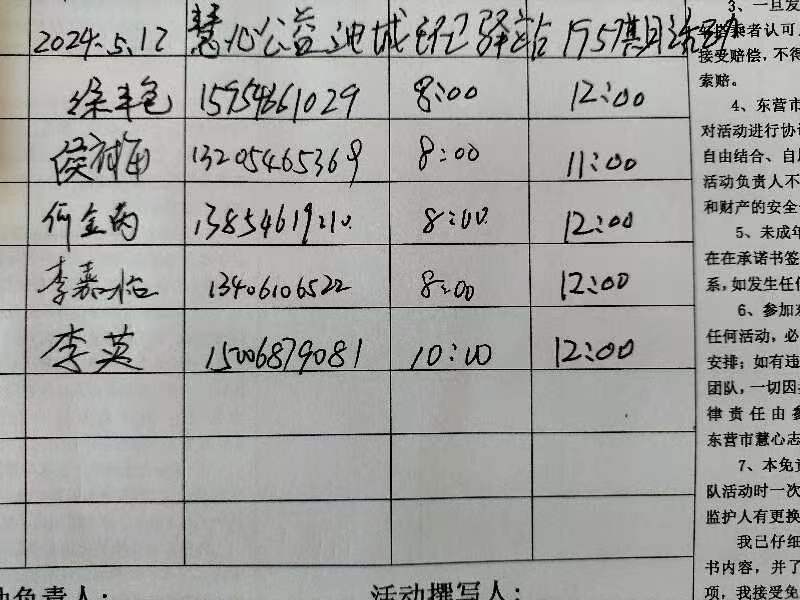 2024.5.12 慧心公益 城 驿站 1957期活动
徐 15954661029 8:00 12:00
侯 13205465369 8:00 11:00
何金 13854619210 8:00 12:00
李嘉怡 13406106522 8:00 12:00
李英 15006879081 10:00 12:00
活动撰写人:
3、一旦发
者认可
接受赔偿,不得
索赔。
4、东营市
对活动进行协
自由结合、自
活动负责人不
和财产的安全
5、未成年
在在承诺书签
系,如发生任
6、参加
任何活动,必
安排;如有违
团队,一切因
律责任由参
东营市慧心志
7、本免责
队活动时一次
监护人有更换
我已仔细
书内容,并了
项,我接受免